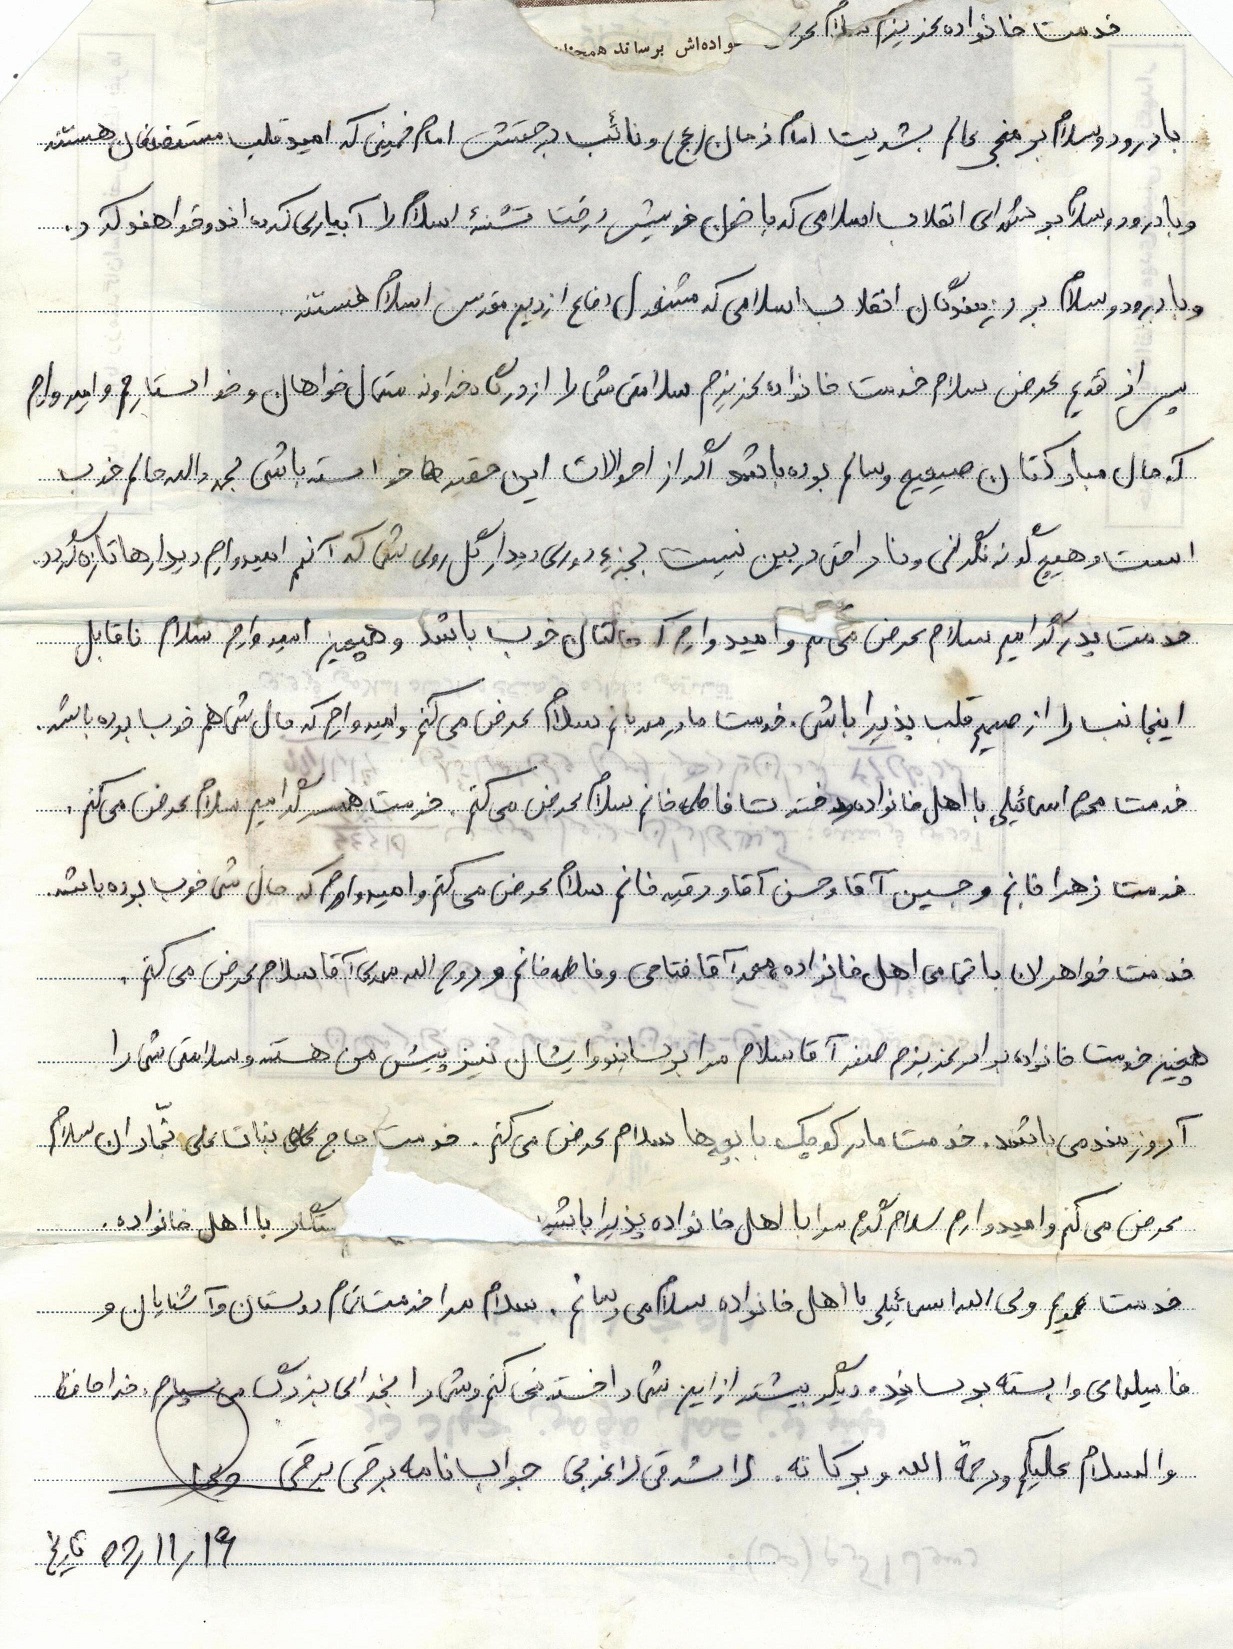 خدمت خانواده عزیزم سلام
واده‌اش برساند همچنا
با درود و سلام بر منجی عالم بشریت امام زمان (عج) و نائب برحقش امام خمینی که امید قلب مستضعفان هستند
و با درود و سلام بر شهدای انقلاب اسلامی که با خون خویش درخت تشنهٔ اسلام را آبیاری کرده‌اند و خواهند کرد.
و با درود و سلام بر رزمندگان انقلاب اسلامی که مشغول دفاع از دین مقدس اسلام هستند.
پس از تقدیم عرض سلام خدمت خانواده عزیزم سلامتی شما را از درگاه خداوند متعال خواهان و خواستارم و امیدوارم
که حال مبارکتان صحیح و سالم بوده باشد اگر از احوالات این حقیر خواسته باشی بحمدالله حالم خوب
است و هیچگونه نگرانی و ناراحتی در بین نیست بجزء دوری دیدار گل روی شما که آنهم امیدوارم دیدارها تازه گردد.
خدمت پدر گرامیم سلام عرض می‌کنم و امیدوارم که حالتان خوب باشد و همچنین امیدوارم سلام ناقابل
اینجانب را از صمیم قلب پذیرا باشی. خدمت مادر مهربانم سلام عرض می‌کنم و امیدوارم که حال شما هم خوب بوده باشد.
خدمت محرم اسمائیلی با اهل خانواده دخترت فاطمه خانم سلام عرض می‌کنم. خدمت همسر گرامیم سلام عرض می‌کنم.
خدمت زهرا خانم و حسین آقا و حسن آقا و رقیه خانم سلام عرض می‌کنم و امیدوارم که حال شما خوب بوده باشد.
خدمت خواهرم با تمامی اهل خانواده محمد آقا فتاحی و فاطمه خانم و روح الله مهدی آقا سلام عرض می‌کنم.
همچنین خدمت خانواده برادر عزیزم صفر آقا سلام مرا برسانید و ایشان نیز پیش من هستند و سلامتی شما را
آروزمند می باشد. خدمت مادر کوچک با بچه‌ها سلام عرض می‌کنم. خدمت حاج علی سلام
عرض می کنم و امیدوارم سلام گرم مرا با اهل خانواده پذیرا باشید با اهل خانواده.
خدمت عمویم ولی الله اسمائیلی با اهل خانواده سلام می رسانم. سلام مرا خدمت تمام دوستان و آشنایان و
فامیلهای وابسته برسانید. دیگر بیشتر از این شما را خسته نمی کنم و شما را بخدای بزرگ می سپارم. خداحافظ
والسلام علیکم و رحمة الله و برکاته. نه شرقی نه غربی جواب نامه برقی برقی
تاریخ ۶۲/۱۱/۱۹